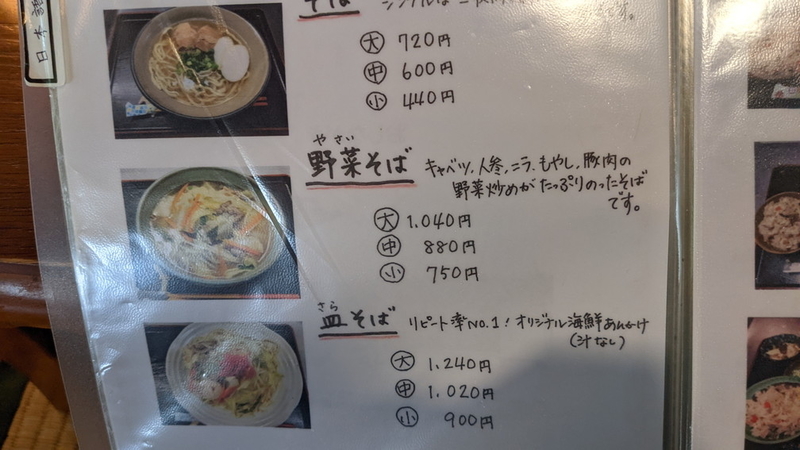 日本
そば
です。
大 720円
中 600円
小 440円
やさい
野菜そば
キャベツ、人参、ニラ、もやし、豚肉の
野菜炒めがたっぷりのったそば
です。
大 1.040円
中 880円
小 750円
さら
皿そば
リピート率NO.1! オリジナル海鮮あんかけ
(汁なし)
大 1.240円
中 1.020円
小 900円